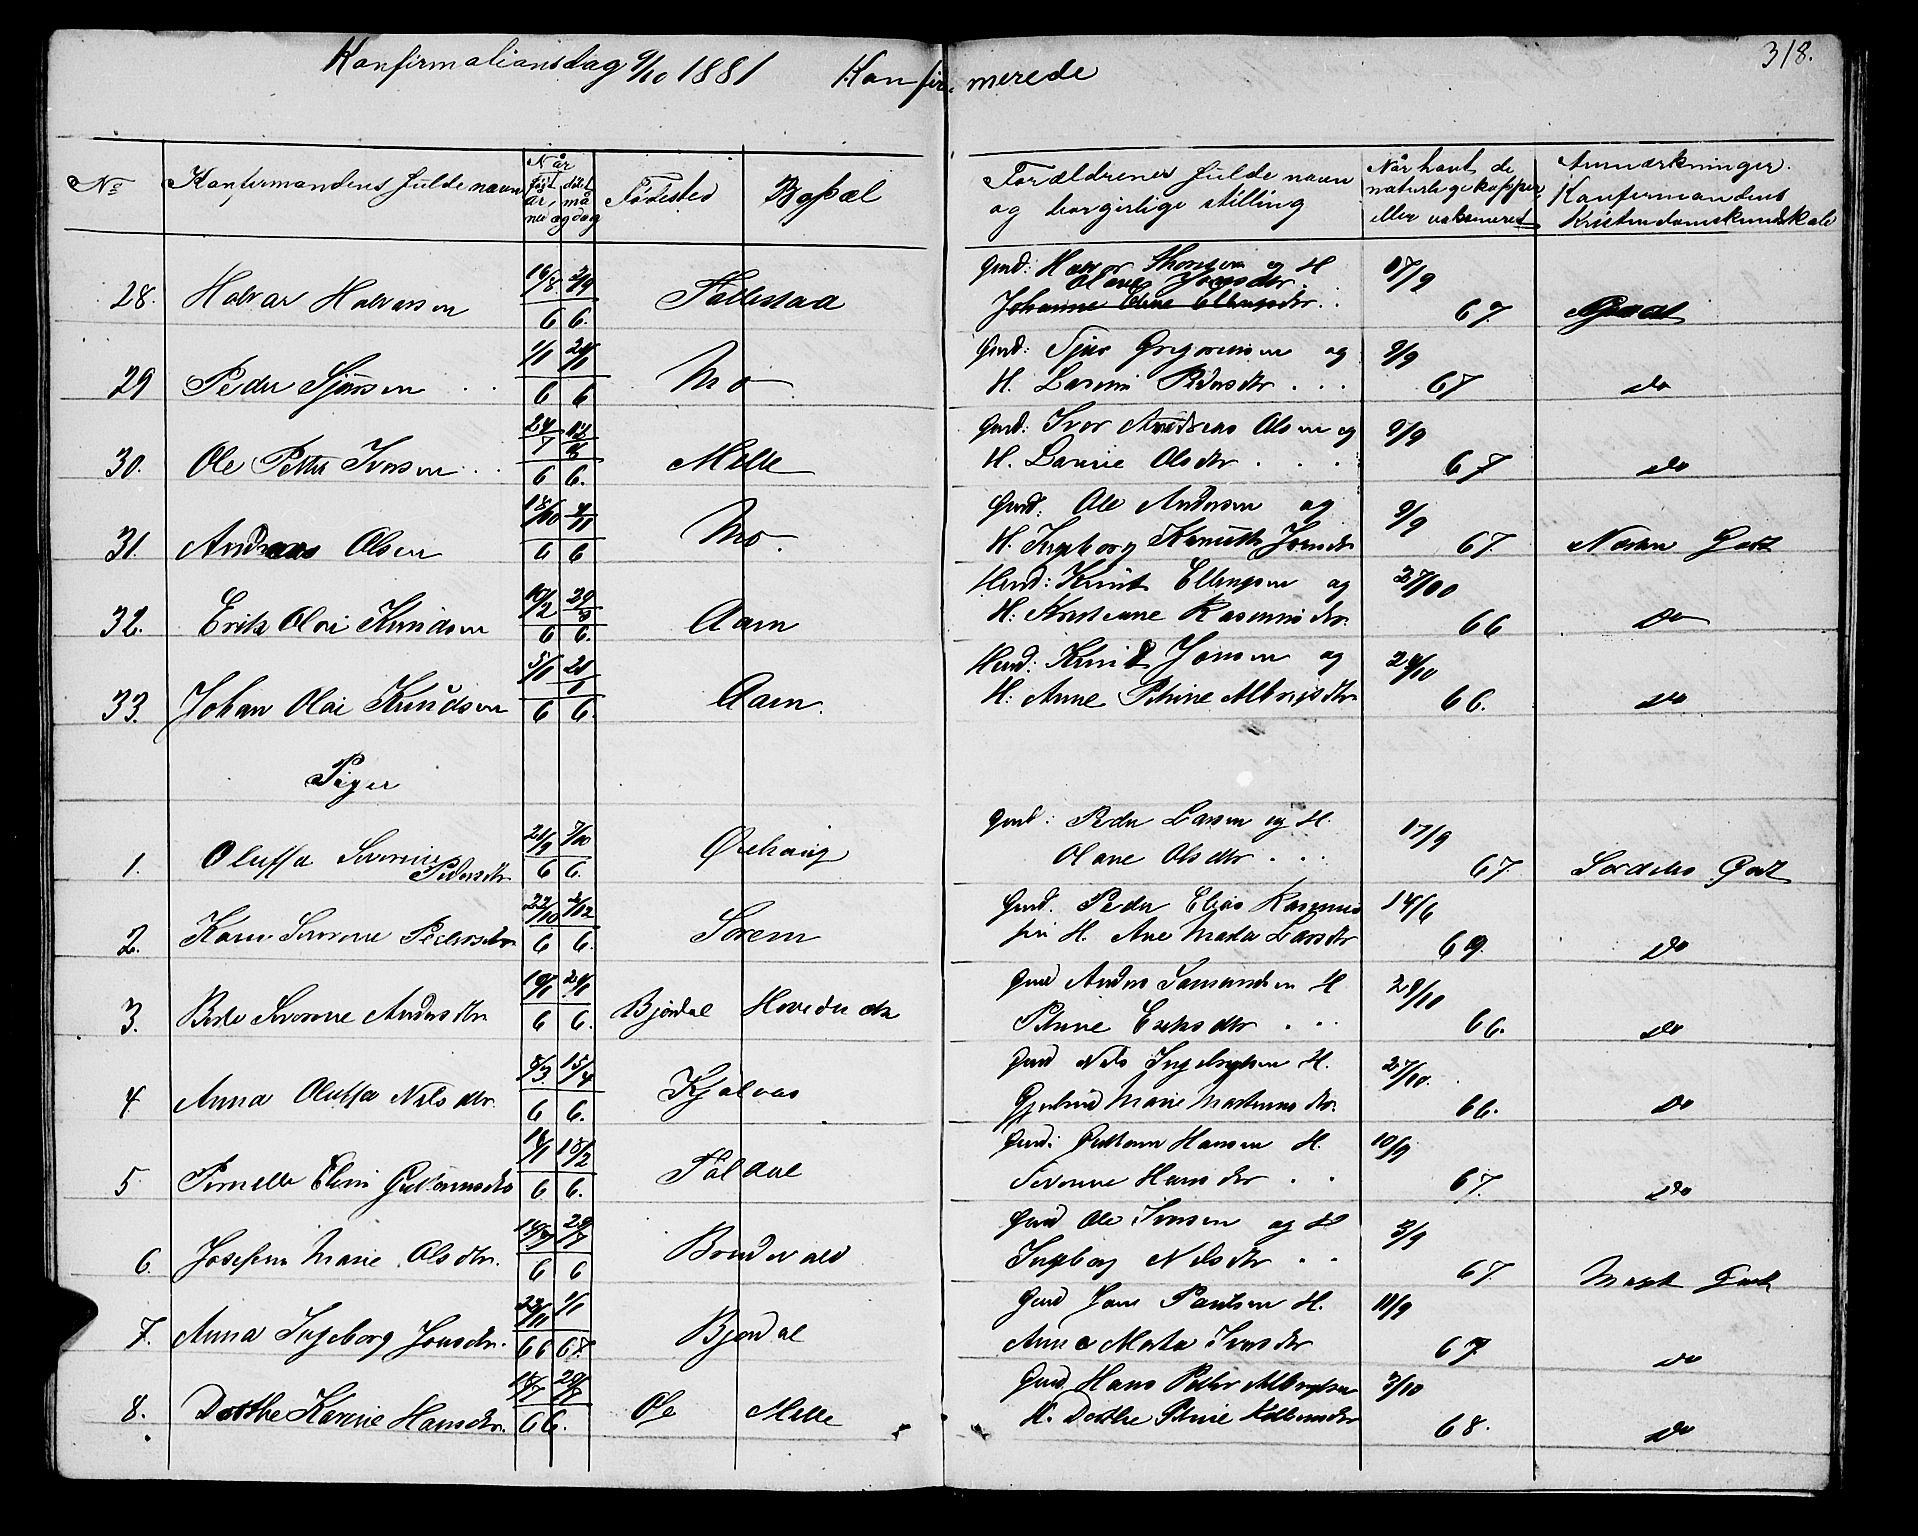 Konfirmationsdag 9/10 1881 Konfirmerede 318.
No Konfirmandens fulde navn Når født år, måned og dag døbt Fødested Bopæl Forældrenes fulde navn og borgerlige stilling Når havt de naturlige kopper eller vaksineret Anmærkninger. Konfirmandens Kristendomskundskab
28. Halvar Halvarsen 16/8 2/9 6 6. Follestaa Gmd: Halvor Thorsen og H
Olane Jonsdtr. 17/9
Johanne Oline Ellingsdtr. 67.
29 Peder Sjursen 1/1 6 6 Mo Gmd: Sjur Gregoriusen og
H. Larsine Pedersdtr 9/9 67 do
30. Ole Petter Ivarsen 24/7 6 6. Melle Gmd: Ivar Andreas Olsen og
H. Laurine Olsdtr 9/9 67 do
31. Andreas Olsen 18/10 4/11 6 6 Mo. Gmd: Ole Andersen og
H. Ingeborg Knudtz Jonsdtr 9/9 67. Næsten Godt
32. Erik Olai Knudsen 6 6. Aam Husmd: Knut Ellingsen og
H. Kristiane Rasmusdtr. 27/10 66 do
33. Johan Olai Knudsen 5/1 21/1 6 6. Aam. Husmd: Knud Jonsen og
H. Anne Petrine Albrigtsdtr 66. do
Piger
1. Oluffa Severine Pedersdtr 21/9 7/10 6 6. Ørehaug Gmd: Peder Larsen og H.
Olane Olsdtr 17/9 67. Særdeles Godt
2. Karen Severine Pedersdtr 22/10 2/12 6 6. Sørem Gmd. Peder Elias Rasmus
sen H. Ane Marta Larsdtr 14/6 69. do
3. Berte Severine Andersdtr 6 6. Bjørdal Hovden Gmd Anders Samundsen H
Petrine Eriksdtr 29/10 66. do
4 Anna Oluffa Nilsdtr. 8/3 15/4 6 6. Kjølaas Gmd Nils Ingebrigtsen H.
Gjertrud Marie Martinusdtr. 27/10. 66. do
5. Pernelle Elise Guttormsdtr 6 6. Folldal Gmd: Guttorm Hansen H.
Severine Hansdtr 10/9 67. do
6. Josefine Marie Olsdtr. 6 6 Bondevald Gmd Ole Ivarsen og H
Ingeborg Nilsdtr 3/9 67. Meget Godt
7. Anna Ingeborg Jonsdtr. 1/1 66 67. Bjørdal Gmd Jon Paulsen H.
Anna Marta Ivarsdtr 11/9 67. do
8. Dorthe Karine Hansdtr. 66. Ose Melle Gmd Hans Petter Albrigtsen
H. Dorthe Petrine Kolbensdtr 3/10 68. do